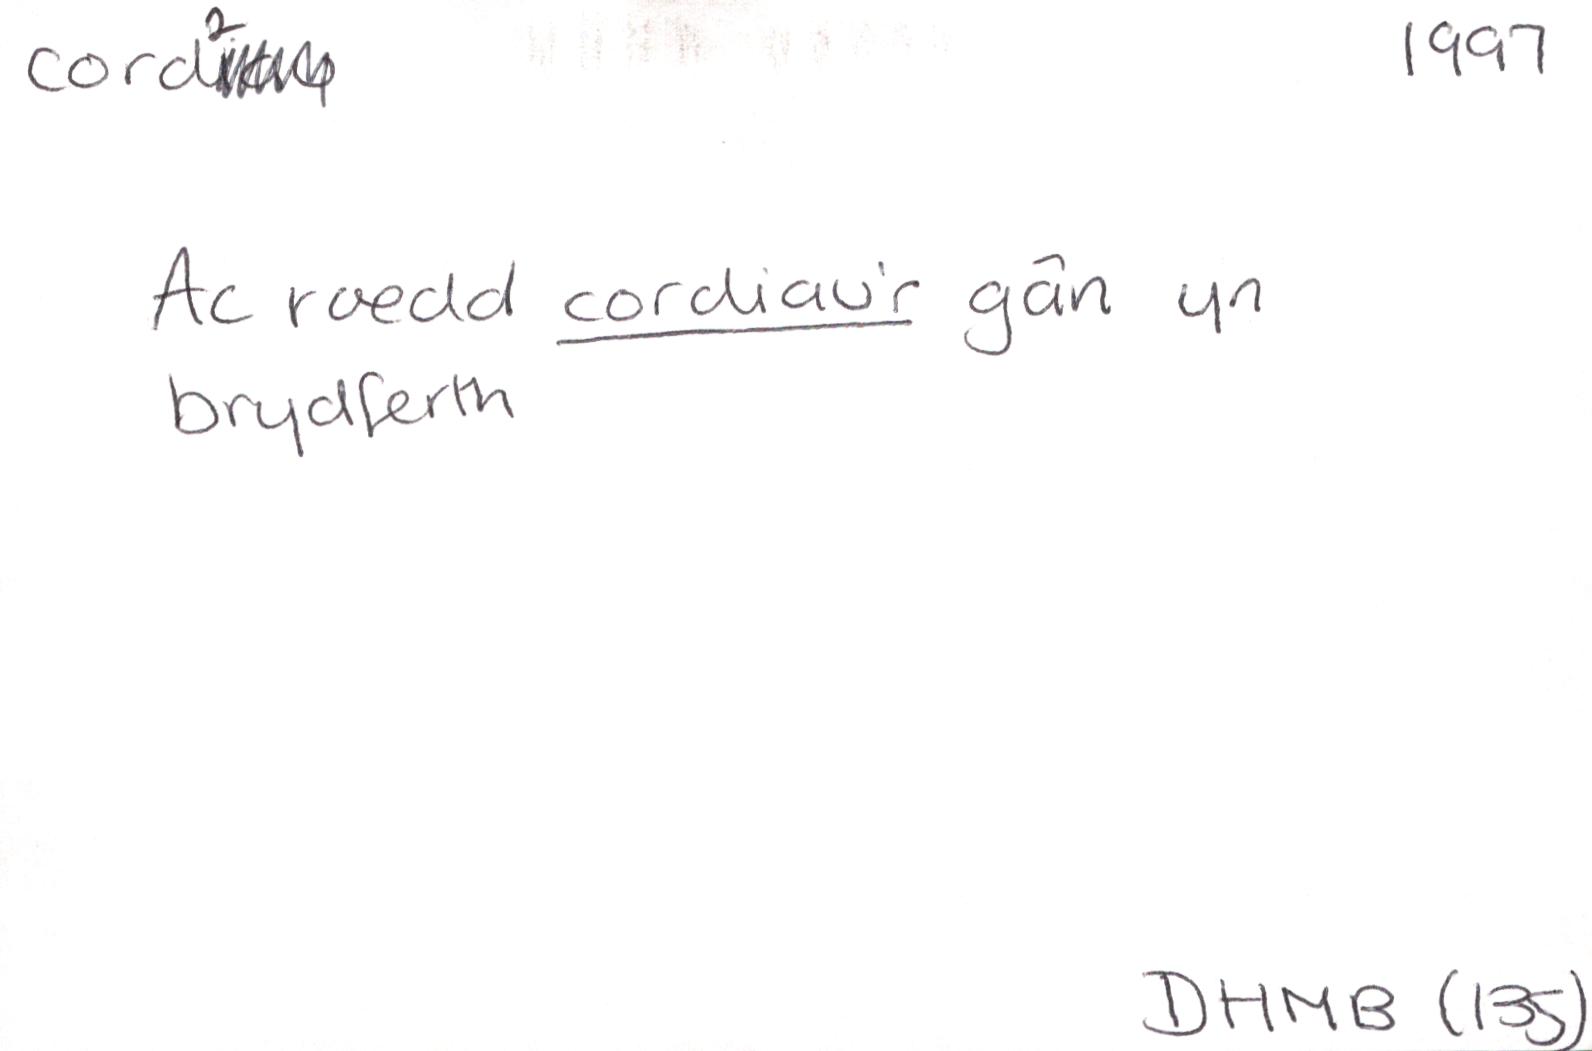 cord²
1997
Ac roedd cordiau'r gân yn
brydferth
DHMB (135)